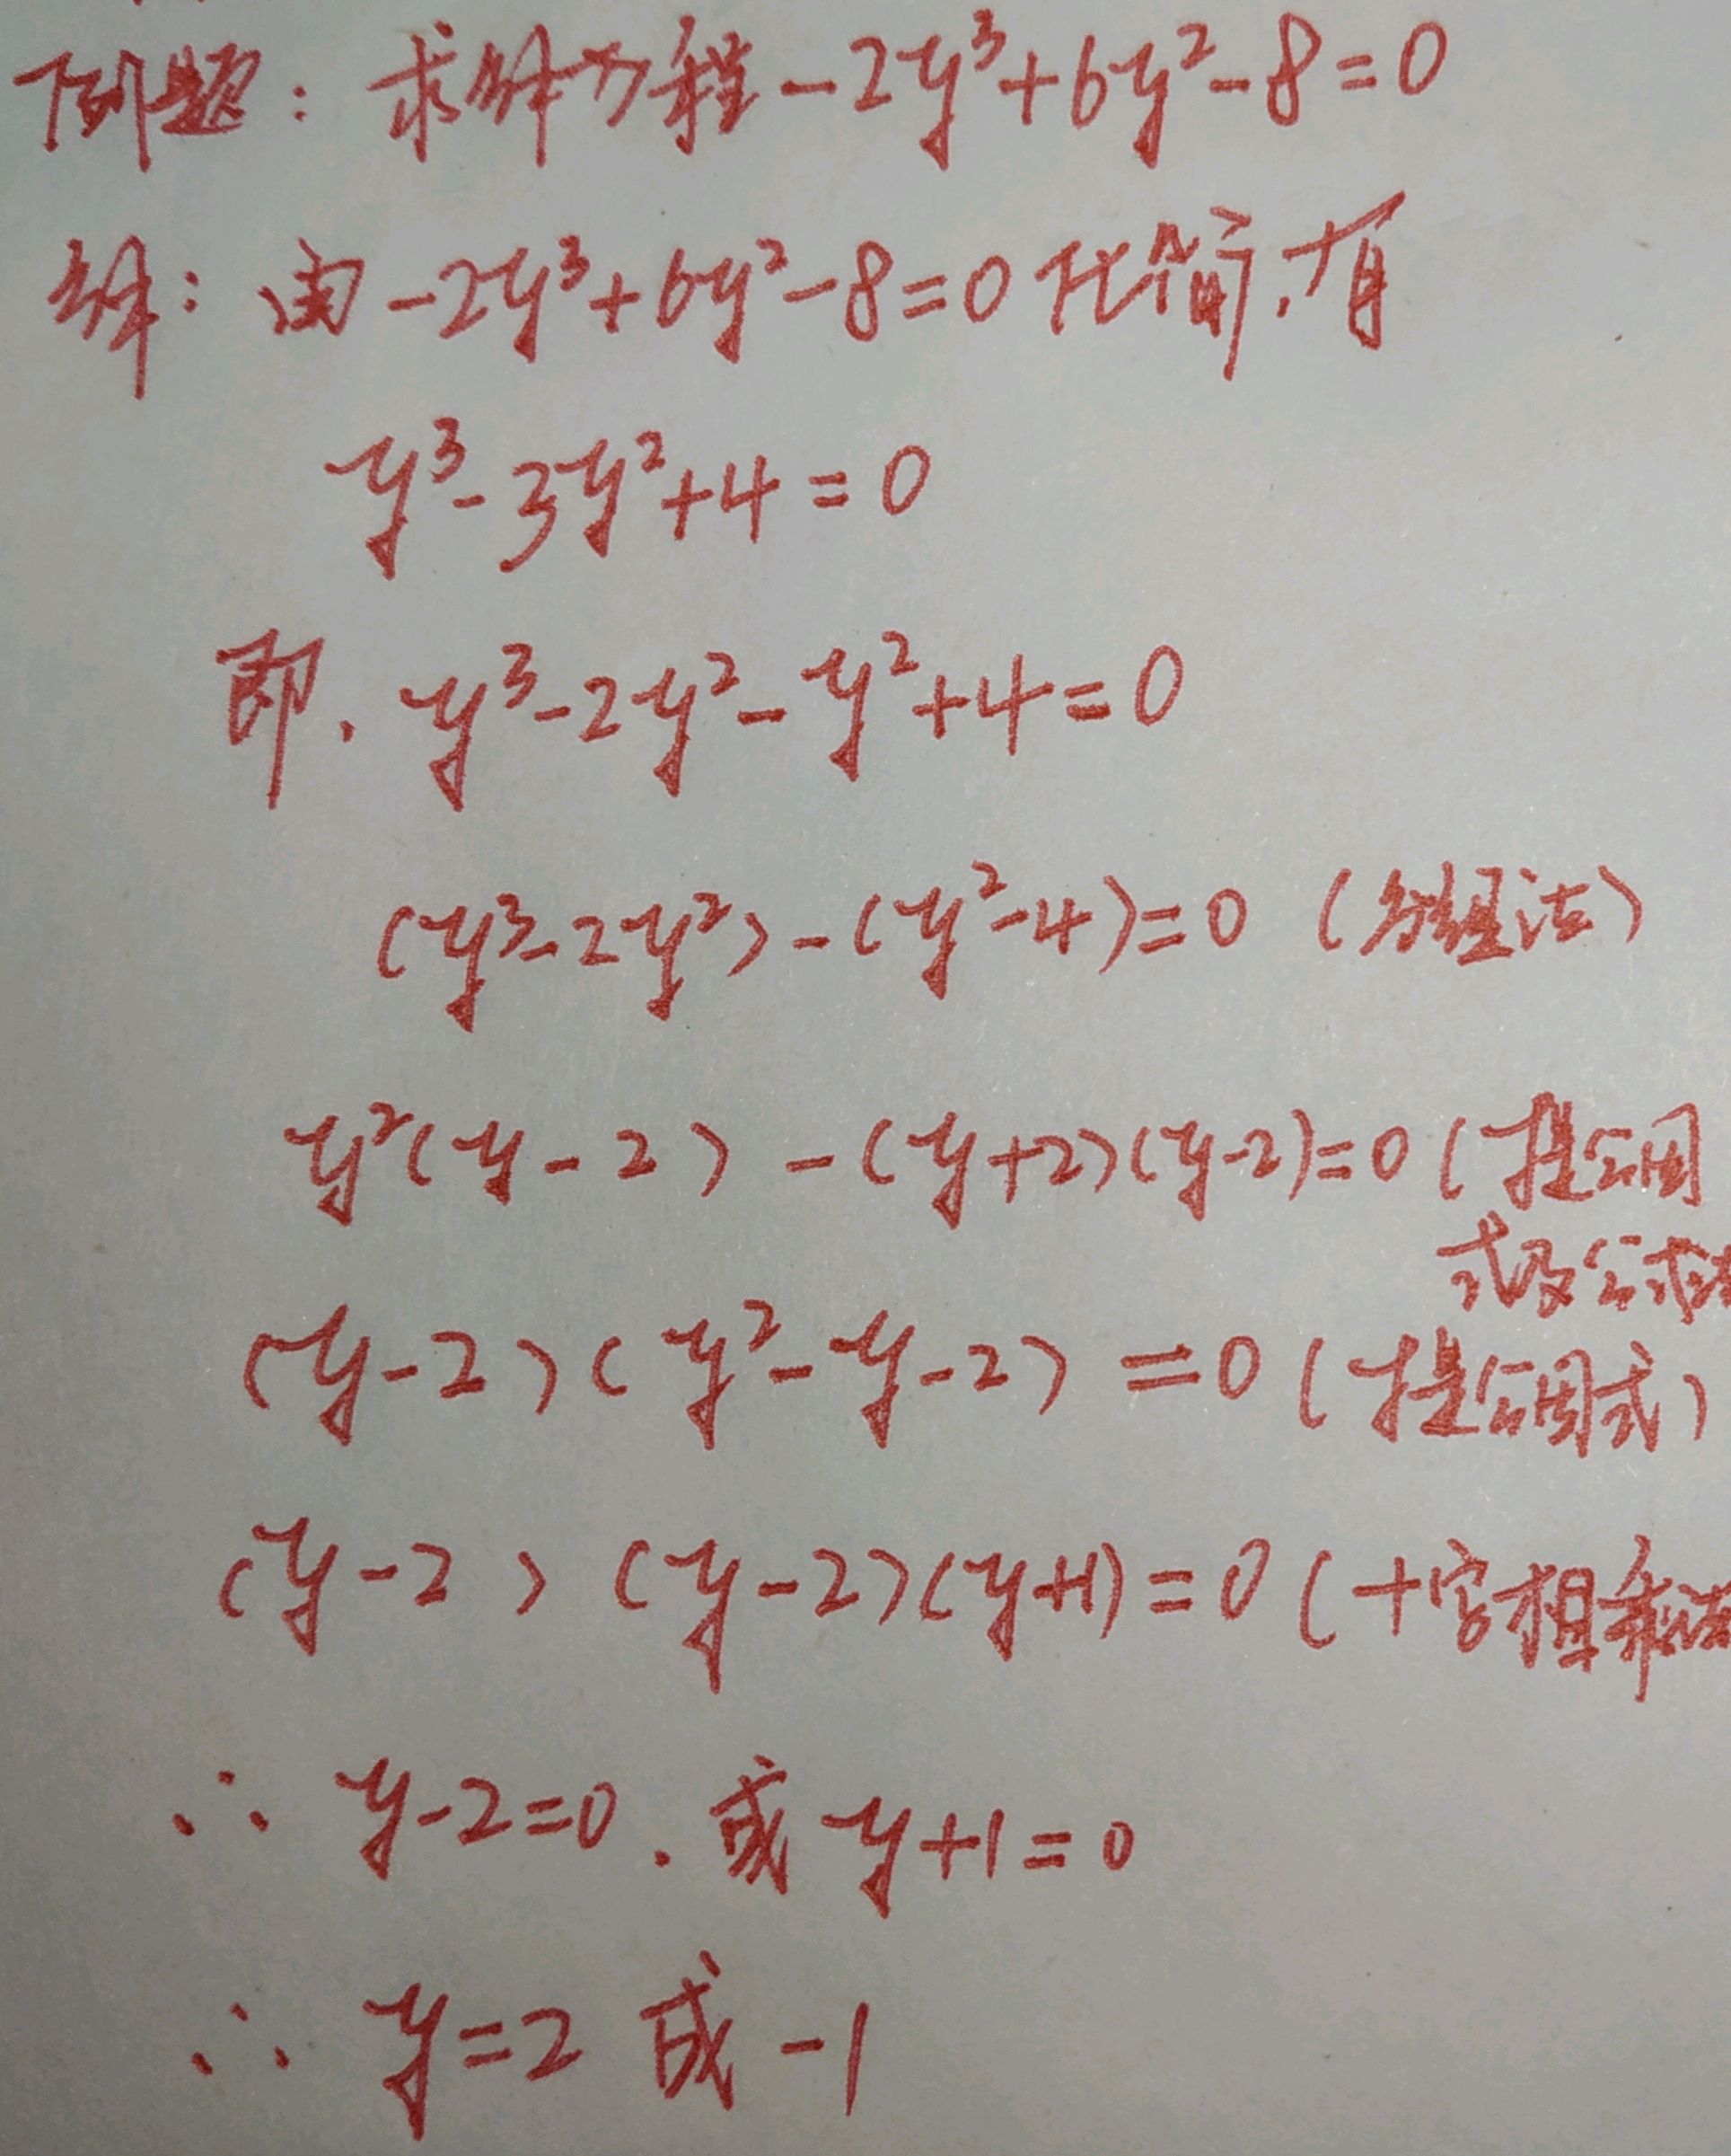 例题：求解方程-2y³+6y²-8=0
解：由-2y³+6y²-8=0化简，有
y³-3y²+4=0
即，y³-2y²-y²+4=0
(y³-2y²)-(y²-4)=0（分组法）
y²(y-2)-(y+2)(y-2)=0（提公因
式及公式法
(y-2)(y²-y-2)=0（提公因式）
(y-2)(y-2)(y+1)=0（十字相乘法
∴ y-2=0，或y+1=0
∴ y=2 或 -1